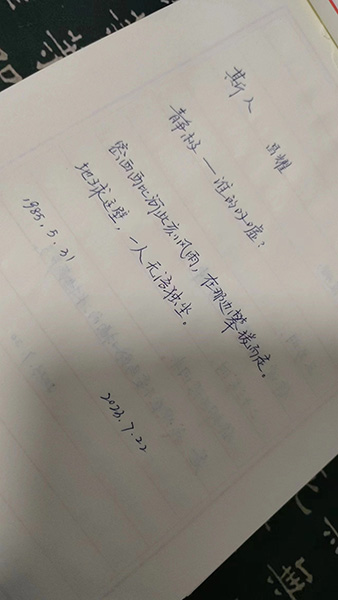 斯人
昌耀
静极——谁的叹嘘?
密西西比河此刻风雨,在那边攀援而走。
地球这壁,一人无语独坐。
1985.5.31
2023.7.22